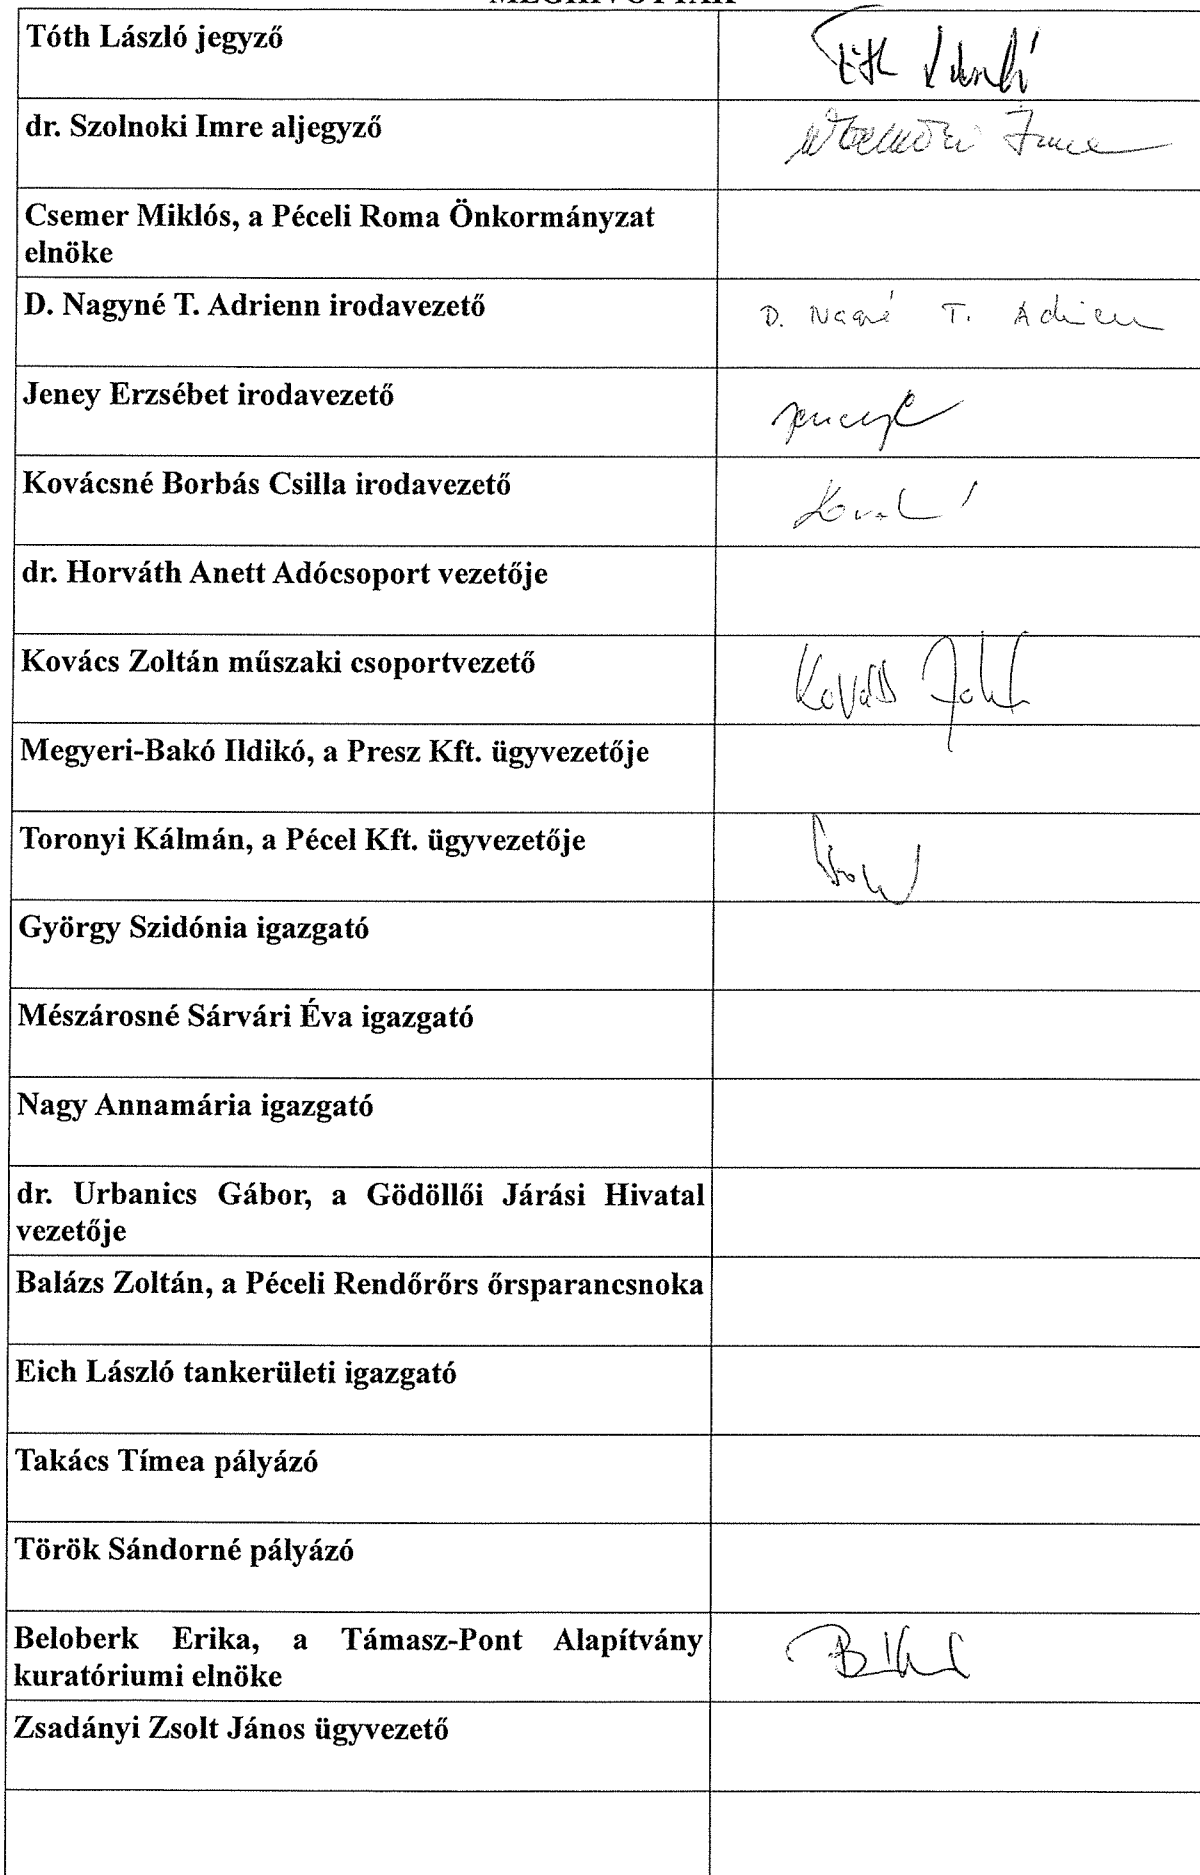 MEGHÍVOTTAK
Tóth László jegyző
Tóth László
dr. Szolnoki Imre aljegyző
Szolnoki Imre
Csemer Miklós, a Péceli Roma Önkormányzat
elnöke
D. Nagyné T. Adrienn irodavezető
D. Nagyné T. Adrienn
Jeney Erzsébet irodavezető
Kovácsné Borbás Csilla irodavezető
dr. Horváth Anett Adócsoport vezetője
Kovács Zoltán műszaki csoportvezető
Kovács Zoltán
Megyeri-Bakó Ildikó, a Presz Kft. ügyvezetője
Toronyi Kálmán, a Pécel Kft. ügyvezetője
György Szidónia igazgató
Mészárosné Sárvári Éva igazgató
Nagy Annamária igazgató
dr. Urbanics Gábor, a Gödöllői Járási Hivatal
vezetője
Balázs Zoltán, a Péceli Rendőrőrs őrsparancsnoka
Eich László tankerületi igazgató
Takács Tímea pályázó
Török Sándorné pályázó
Beloberk Erika, a Támasz-Pont Alapítvány
kuratóriumi elnöke
Zsadányi Zsolt János ügyvezető